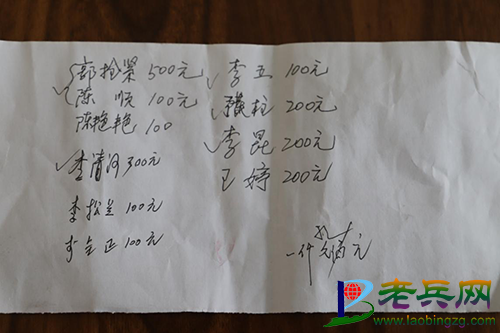 郭拴荣 500元
陈顺 100元
陈艳艳 100
李清河 300元
李松兰 100元
李全正 100元
李五 100元
柱 200元
李昆 200元
王婷 200元
一仟 元
老兵网
www.laobingzg.com